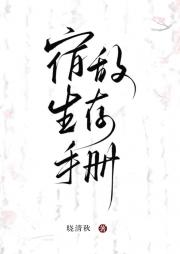 宿敌
生存
手册
晓清秋 著